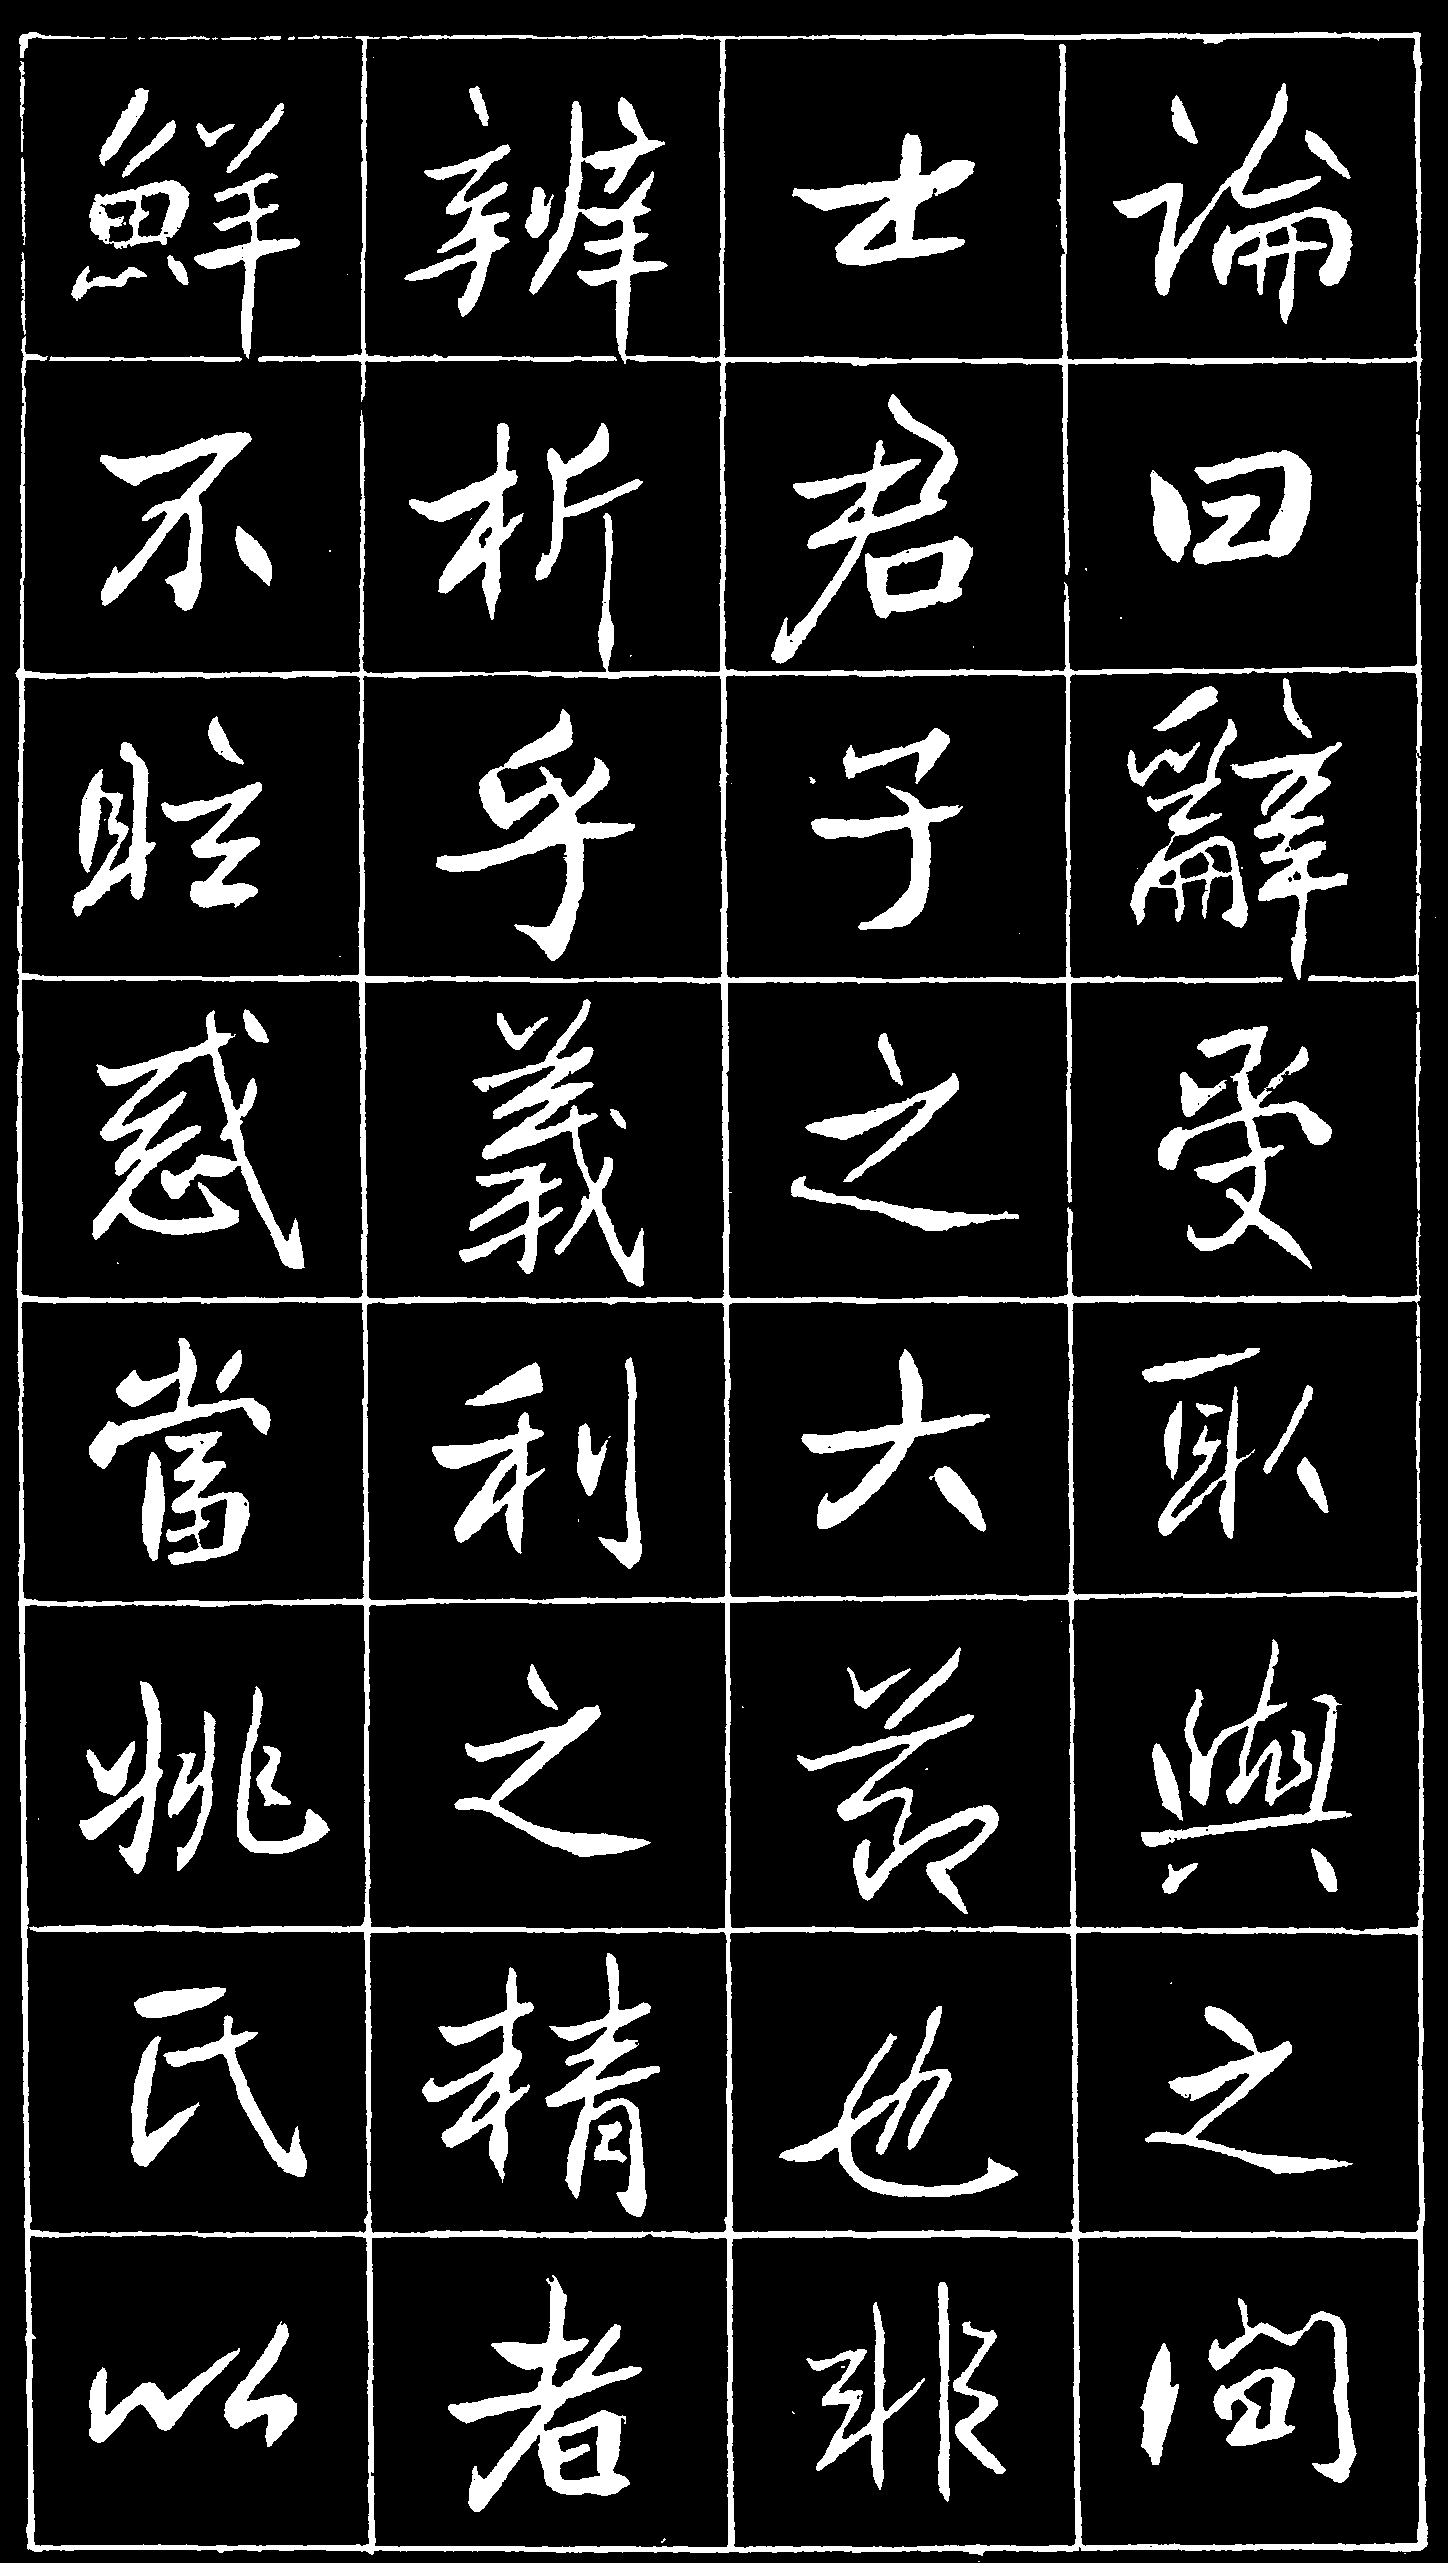 論曰辭受取與之間
士君子之大節也非
辨析乎義利之精者
鮮不眩惑當姚氏以